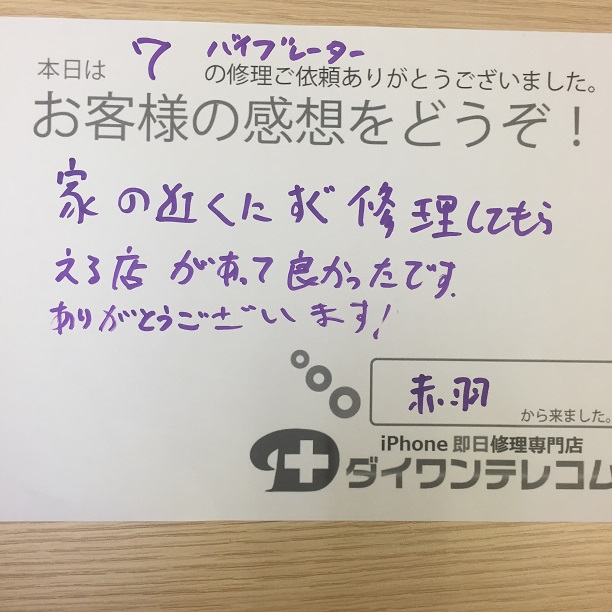 本日は 7 バイブレーター の修理ご依頼ありがとうございました。
お客様の感想をどうぞ！
家の近くにすぐ修理してもら
える店があって良かったです.
ありがとうございます!
赤羽 から来ました。
iPhone 即日修理専門店
ダイワンテレコム